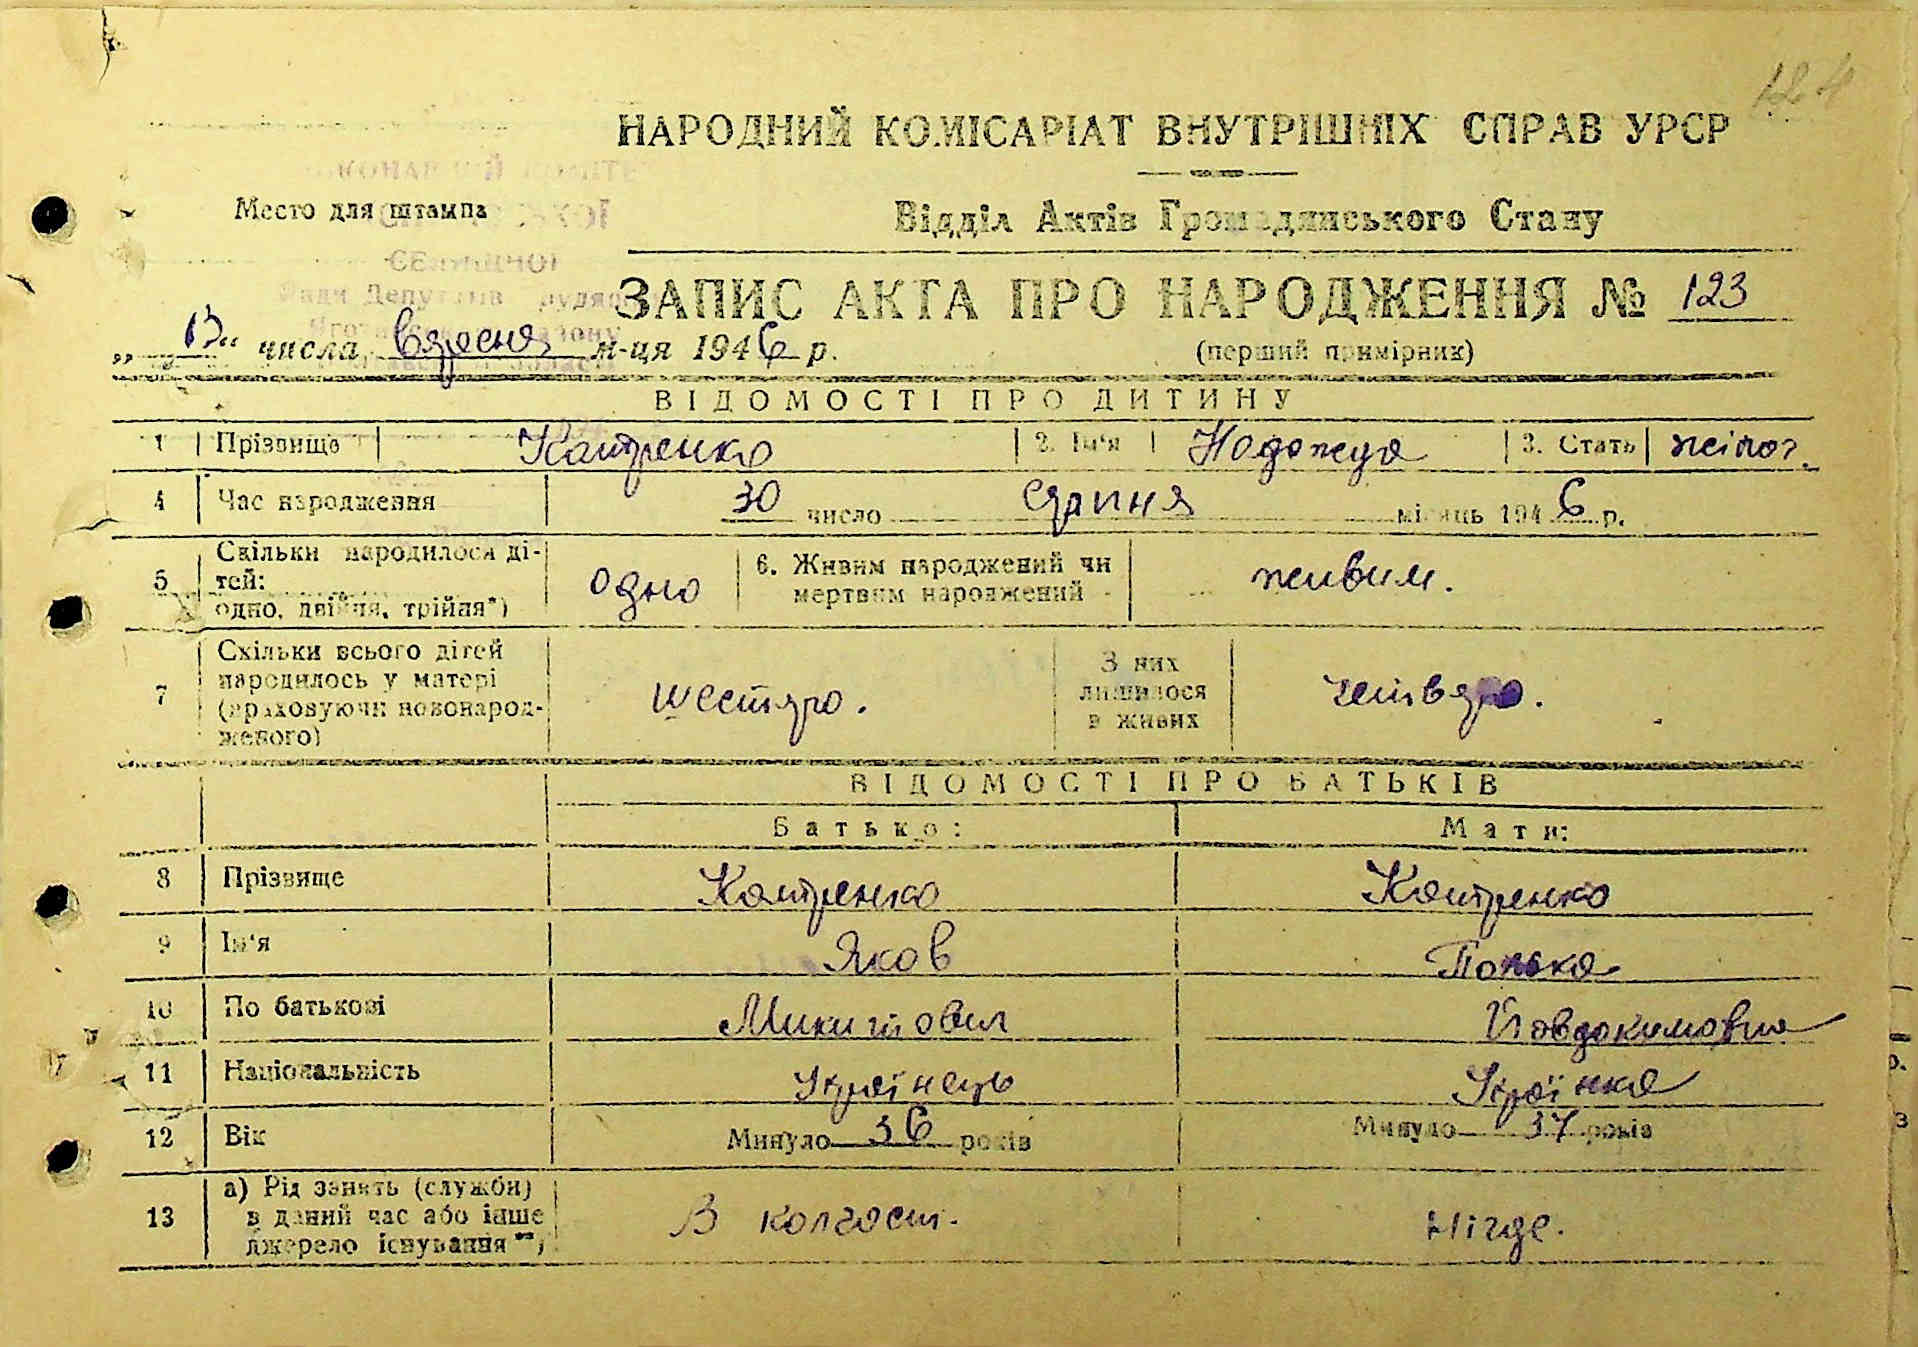 124
НАРОДНИЙ КОМІСАРІАТ ВНУТРІШНІХ СПРАВ УРСР
Место для штампа
Відділ Актів Громадянського Стану
ЗАПИС АКТА ПРО НАРОДЖЕННЯ № 123
„13“ числа вересня м-ця 1946 р.
(перший примірник)
ВІДОМОСТІ ПРО ДИТИНУ
1 Прізвище Каптренко 2. Ім'я Надежда 3. Стать жіноч.
4 Час народження 30 число серпня місяць 1946 р.
5 Скільки народилося дітей: одно, двійня, трійня*) одно 6. Живим народжений чи мертвим народжений живим.
7 Скільки всього дітей народилось у матері (враховуючи новонародженого) шестеро. З них лишилося в живих четверо.
ВІДОМОСТІ ПРО БАТЬКІВ
Батько: Мати:
8 Прізвище Каптренко Каптренко
9 Ім'я Яков Полька
10 По батькові Микитович Йовдокимовна
11 Національність Українець Українка
12 Вік Минуло 36 років Минуло 37 років
13 а) Рід занять (служби) в даний час або інше джерело існування**) В колгосп. Нігде.